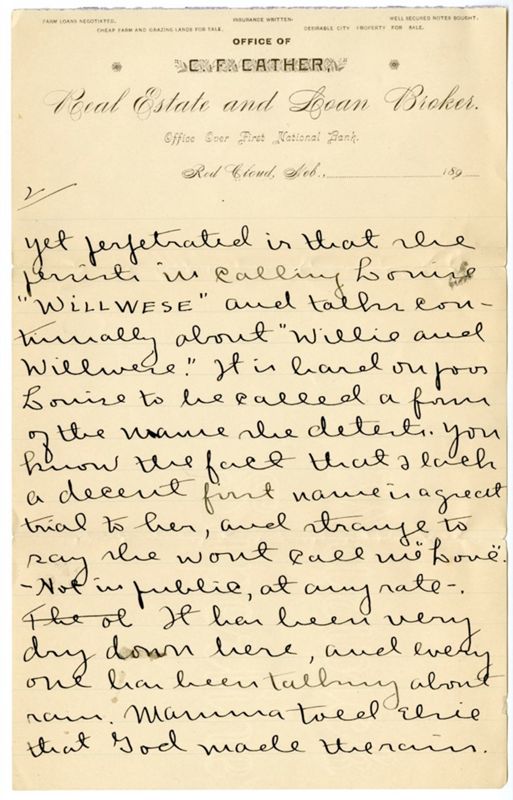 FARM LOANS NEGOTIATED. INSURANCE WRITTEN. WELL SECURED NOTES BOUGHT.
CHEAP FARM AND GRAZING LANDS FOR SALE. DESIRABLE CITY PROPERTY FOR SALE.
OFFICE OF
C. F. CATHER,
Real Estate and Loan Broker.
Office Over First National Bank.
Red Cloud, Neb., 189
2
yet perpetrated is that she
persists in calling Louise
"WILLWESE" and talks con-
tinually about "Willie and
Willwese." It is hard on poor
Louise to be called a form
of the name she detests. You
know the fact that I lack
a decent first name is a great
trial to her, and strange to
say she wont call me "Love".
-Not in public, at any rate-.
The ol It has been very
dry down here, and every
one has been talking about
rain. Mamma toled Elsie
that God made the rain.